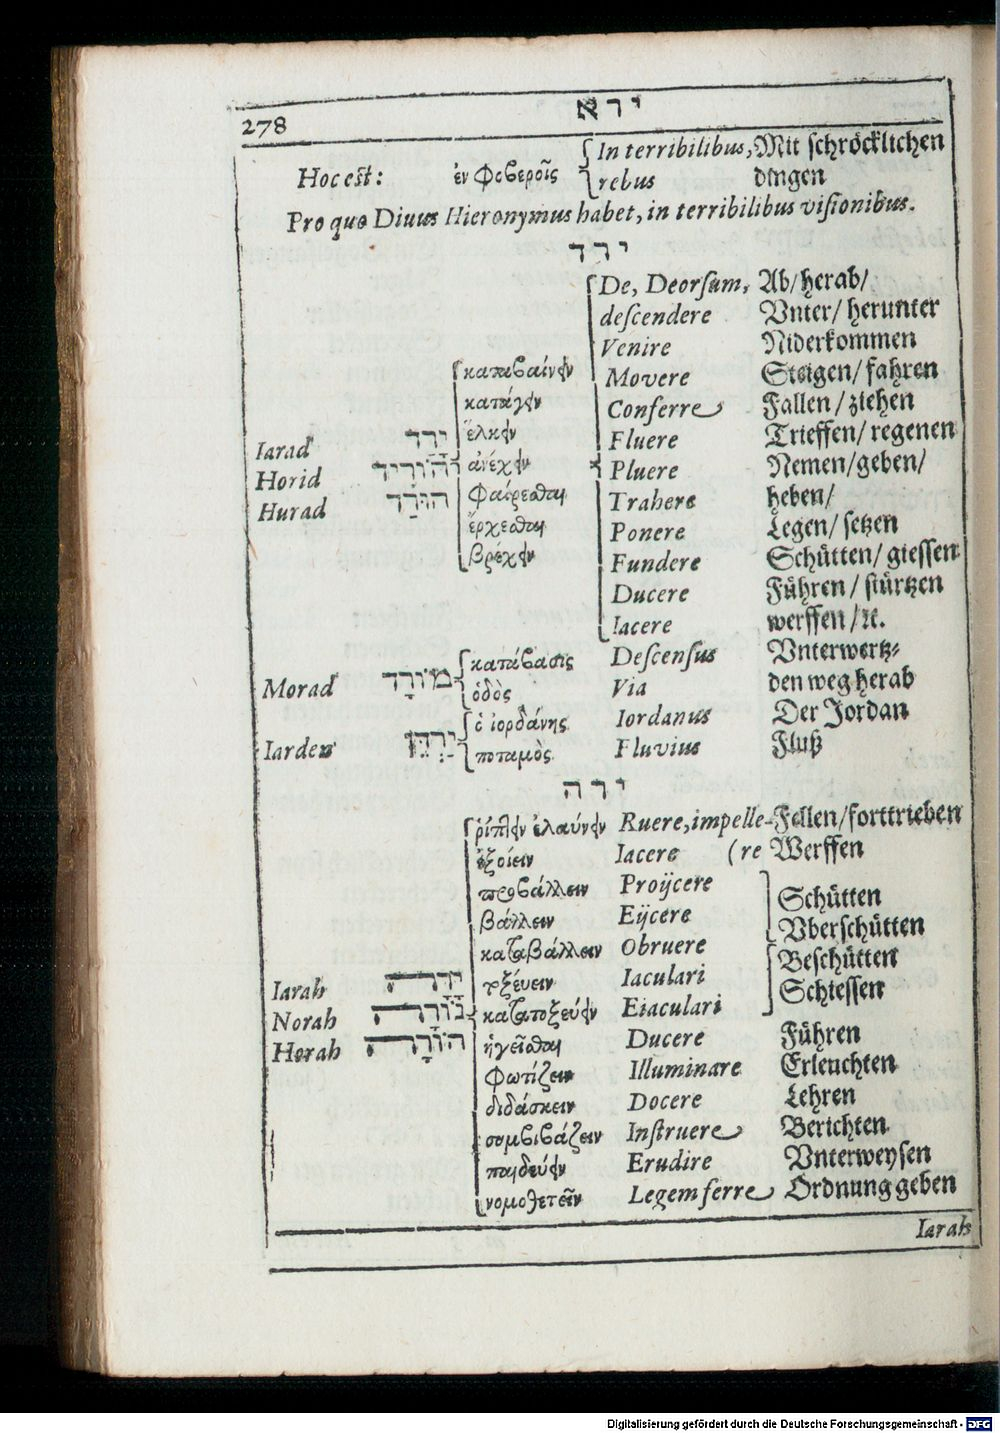 278 ירא
Hoc est: ἐν φοβεροῖς In terribilibus, Mit schröcklichen
rebus dingen
Pro quo Divus Hieronymus habet, in terribilibus visionibus.
ירד
De, Deorsum, Ab/ herab/
descendere Vnter/ herunter
Venire Niderkommen
καταβαίνειν Movere Steigen/ fahren
κατάγειν Conferre Fallen/ ziehen
Iarad יָרַד ἕλκειν Fluere Trieffen/ regenen
Horid הוֹרִיד ἀνέχειν Pluere Nemen/ geben/
Hurad הוּרַד φαίρεσθαι Trahere heben/
ἔρχεσθαι Ponere Legen/ setzen
βρέχειν Fundere Schütten/ giessen
Ducere Führen/ stürtzen
Iacere werffen/ ꝛc.
Morad מוֹרָד κατάβασις Descensus Vnterwertz-
ὁδὸς Via den weg herab
Iarden יַרְדֵּן ὁ ἰορδάνης Iordanus Der Jordan
ποταμὸς Fluvius Fluß
ירה
ῥίπτειν ἐλαύνειν Ruere, impelle- Fellen/ forttrieben
Iacere (re Werffen
προβάλλειν Proijcere Schütten
βάλλειν Eijcere Vberschütten
καταβάλλειν Obruere Beschütten
Iarah יָרָה τοξέυειν Iaculari Schiessen
Norah נוֹרָה κατατοξεύειν Eiaculari
Horah הוֹרָה ἡγεῖσθαι Ducere Führen
φωτίζειν Illuminare Erleuchten
διδάσκειν Docere Lehren
συμβιβάζειν Instruere Berichten
παιδεύειν Erudire Vnterweysen
νομοθετεῖν Legem ferre Ordnung geben
Iarah
Digitalisierung gefördert durch die Deutsche Forschungsgemeinschaft - DFG